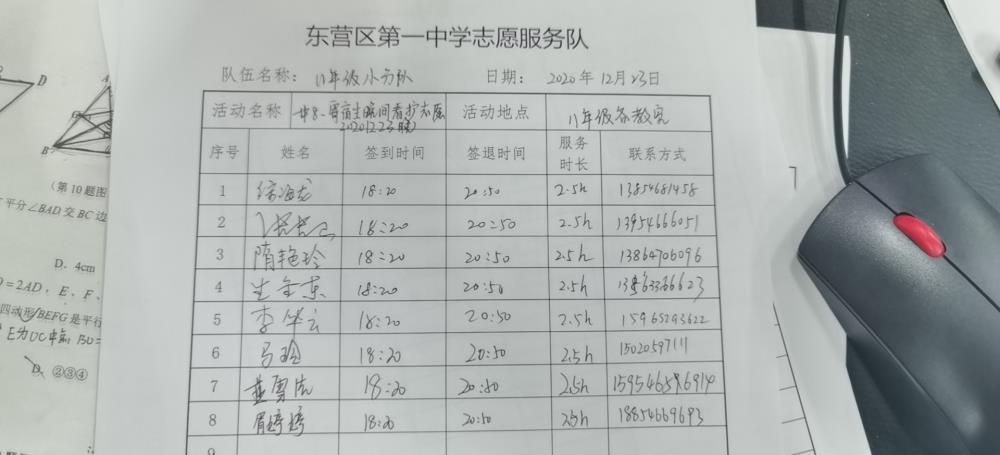 东营区第一中学志愿服务队
队伍名称： 11年级小分队 日期： 2020年12月23日
活动名称 寄宿生晚间看护志愿 活动地点 11年级各教室
20201223晚
序号 姓名 签到时间 签退时间 服务时长 联系方式
1 18:20 20:50 2.5h 13854681458
2 18:20 20:50 2.5h 13954666051
3 隋艳玲 18:20 20:50 2.5h 13864706096
4 生金东 18:20 20:50 2.5h
5 李华云 18:20 20:50 2.5h 15965293622
6 马玲 18:20 20:50 2.5h 15020597111
7 18:20 20:50 2.5h
8 胥婷婷 18:20 20:50 2.5h 18854669693
9
D
A
B
(第10题图
平分∠BAD,交BC边
D. 4cm
=2AD，E、F、
四边形BEFG是平行
E为DC中点,
D. ②③④